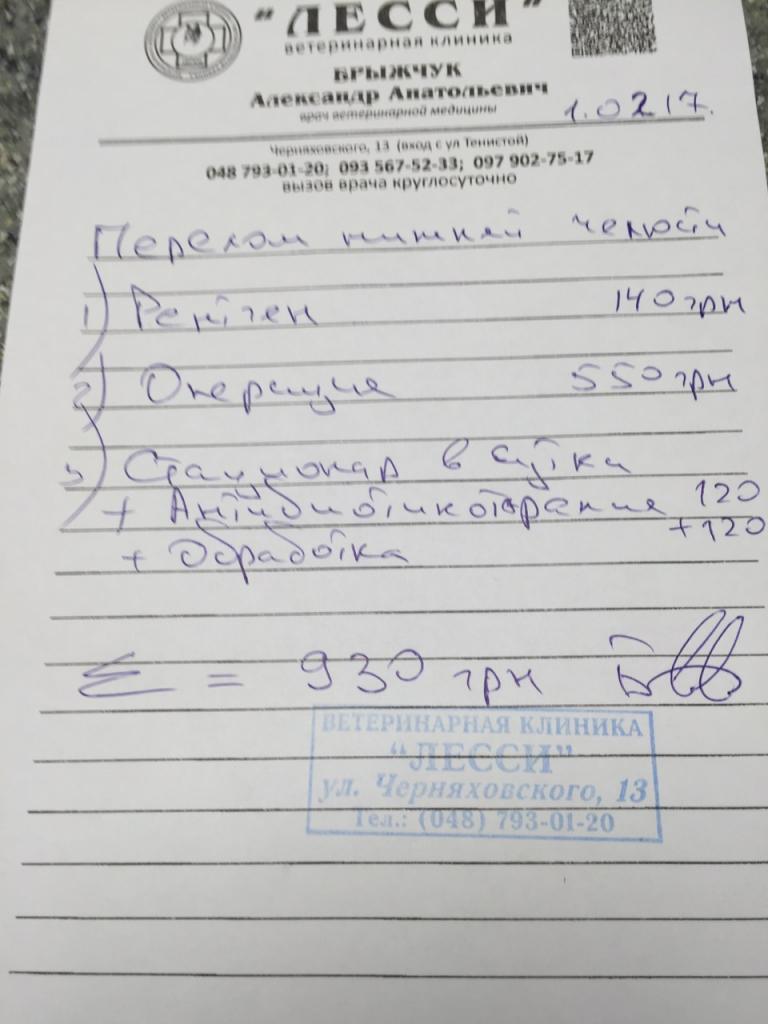 "ЛЕССИ"
ветеринарная клиника
БРЫЖЧУК
Александр Анатольевич
врач ветеринарной медицины
1.0217.
Черняховского, 13 (вход с ул Тенистой)
048 793-01-20; 093 567-52-33; 097 902-75-17
вызов врача круглосуточно
Перелом нижней челюсти
1) Рентген 140 грн
2) Операция 550 грн
3) Стационар в сутки
+ Антибиотикотерапия 120
+ Обработка +120
Σ = 930 грн
ВЕТЕРИНАРНАЯ КЛИНИКА
"ЛЕССИ"
ул. Черняховского, 13
Тел.: (048) 793-01-20